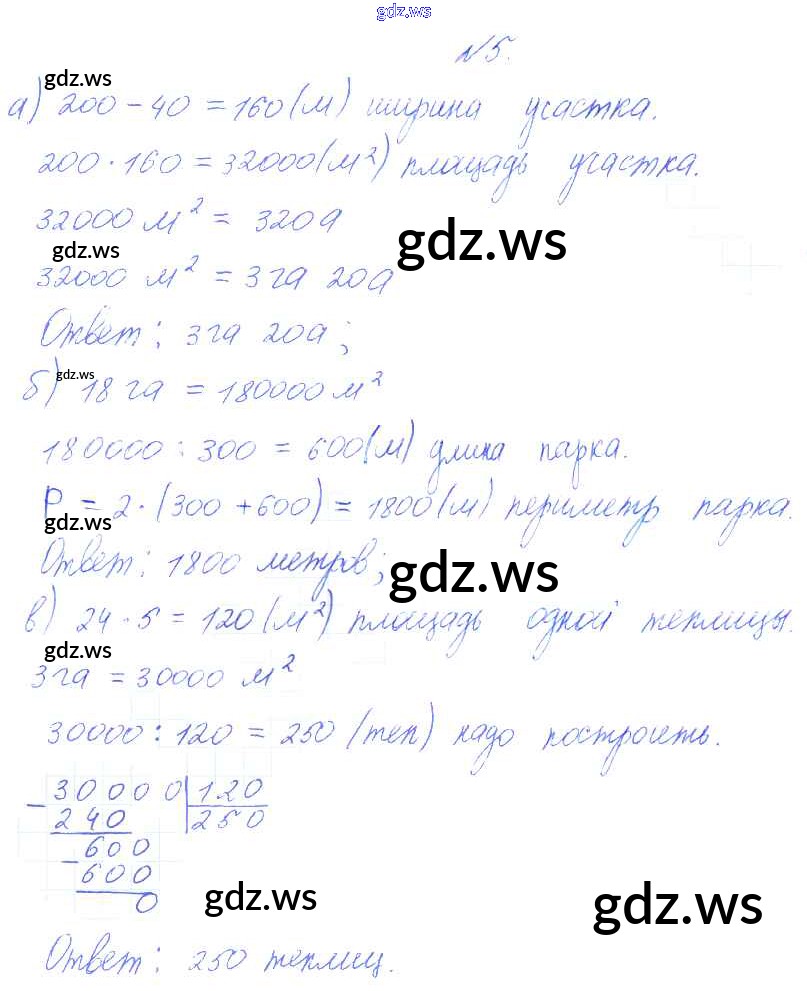 gdz.ws
№5.
gdz.ws
а) 200 - 40 = 160 (м) ширина участка.
200 · 160 = 32000 (м²) площадь участка.
32000 м² = 320а
gdz.ws
gdz.ws
32000 м² = 3га 20а
Ответ: 3га 20а;
gdz.ws
б) 18 га = 180000 м²
180000 : 300 = 600 (м) длина парка.
P = 2 · (300 + 600) = 1800 (м) периметр парка.
gdz.ws
Ответ: 1800 метров;
gdz.ws
в) 24 · 5 = 120 (м²) площадь одной теплицы.
gdz.ws
3га = 30000 м²
30000 : 120 = 250 (теп) надо построить.
- 30000 | 120
240 | 250
- 600
600
0
gdz.ws
gdz.ws
Ответ: 250 теплиц.